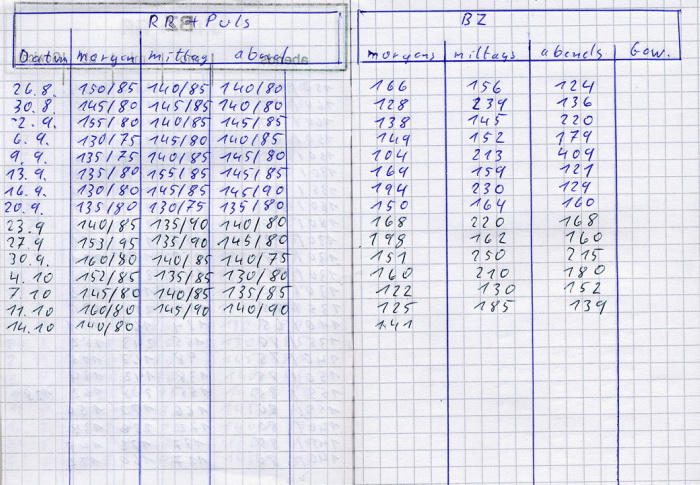 RR + Puls BZ
Datum morgens mittag abend morgens mittags abends Gew.
26.8. 150/85 140/85 140/80 166 156 124
30.8. 145/80 145/85 140/80 128 239 136
2.9. 155/80 140/85 145/85 138 145 220
6.9. 130/75 145/80 140/85 149 152 179
9.9. 135/75 140/85 145/80 104 213 409
13.9. 135/80 155/85 145/85 164 159 121
16.9. 130/80 145/85 145/90 194 230 129
20.9. 135/80 130/75 135/80 150 164 160
23.9 140/85 135/90 140/80 168 220 168
27.9 153/95 135/90 145/80 198 162 160
30.9. 160/80 140/85 140/75 151 250 215
4.10 152/85 135/85 130/80 160 210 180
7.10 145/80 140/85 135/85 122 130 152
11.10 160/80 145/90 140/90 125 185 139
14.10 140/80 141